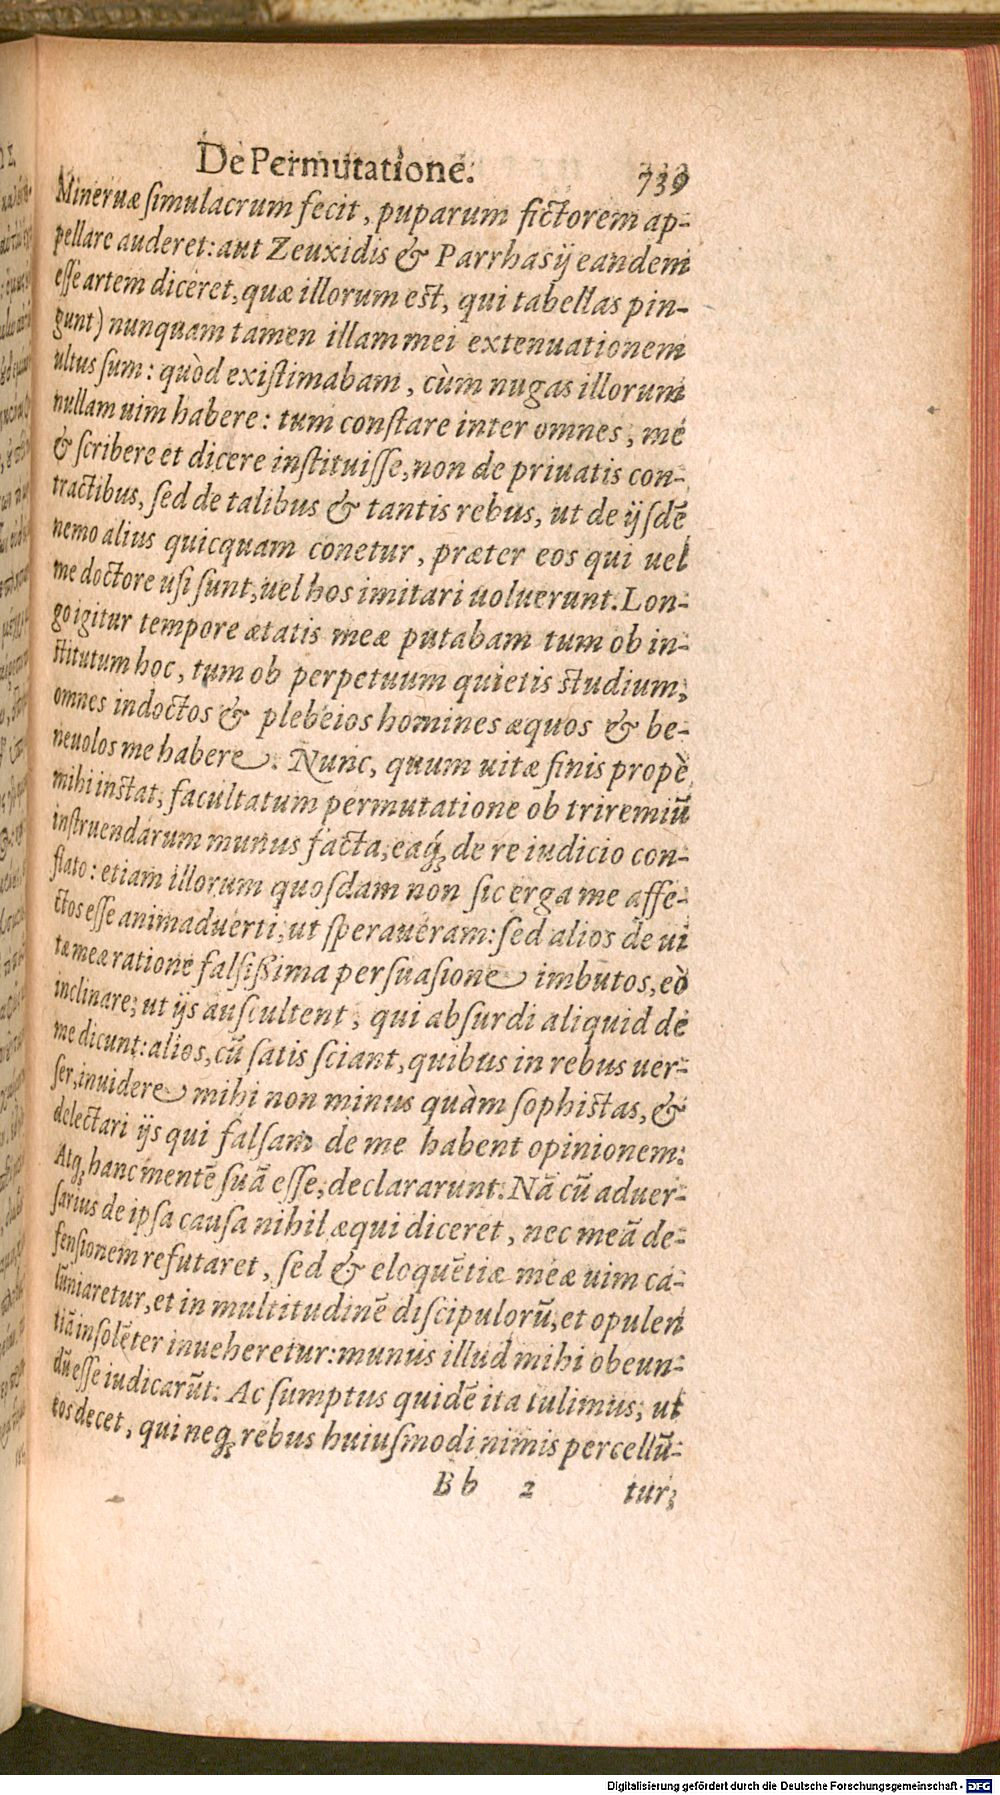 De Permutatione. 739
Mineruæ ſimulacrum fecit, puparum fictorem ap-
pellare auderet: aut Zeuxidis & Parrhasij eandem
eſſe artem diceret, quæ illorum est, qui tabellas pin-
gunt) nunquam tamen illam mei extenuationem
ultus ſum: quòd exiſtimabam, cùm nugas illorum
nullam uim habere: tum conſtare inter omnes, me
& ſcribere et dicere inſtituiſſe, non de priuatis con-
tractibus, ſed de talibus & tantis rebus, ut de ijſdē
nemo alius quicquam conetur, præter eos qui uel
me doctore uſi ſunt, uel hos imitari uoluerunt. Lon-
go igitur tempore ætatis meæ putabam tum ob in-
stitutum hoc, tum ob perpetuum quietis studium,
omnes indoctos & plebeios homines æquos & be-
neuolos me habere. Nunc, quum uitæ finis propè
mihi instat, facultatum permutatione ob triremiū
inſtruendarum munus facta, eaq́; de re iudicio con-
flato: etiam illorum quoſdam non ſic erga me affe-
ctos eſſe animaduerti, ut ſperaueram: ſed alios de ui
tæ meæ ratione falſißima perſuaſione imbutos, eò
inclinare, ut ijs auſcultent, qui abſurdi aliquid de
me dicunt: alios, cū ſatis ſciant, quibus in rebus uer-
ſer, inuidere mihi non minus quàm ſophistas, &
delectari ijs qui falſam de me habent opinionem:
Atq; hanc mentē ſuā eſſe, declararunt. Nā cū aduer-
ſarius de ipſa cauſa nihil æqui diceret, nec meā de-
fenſionem refutaret, ſed & eloquētiæ meæ uim ca-
lūniaretur, et in multitudinē diſcipulorū, et opulen
tiā inſolēter inueheretur: munus illud mihi obeun-
dū eſſe iudicarūt: Ac ſumptus quidē ita tulimus, ut
eos decet, qui neq; rebus huiuſmodi nimis percellū-
B b 2 tur,
Digitalisierung gefördert durch die Deutsche Forschungsgemeinschaft - DFG